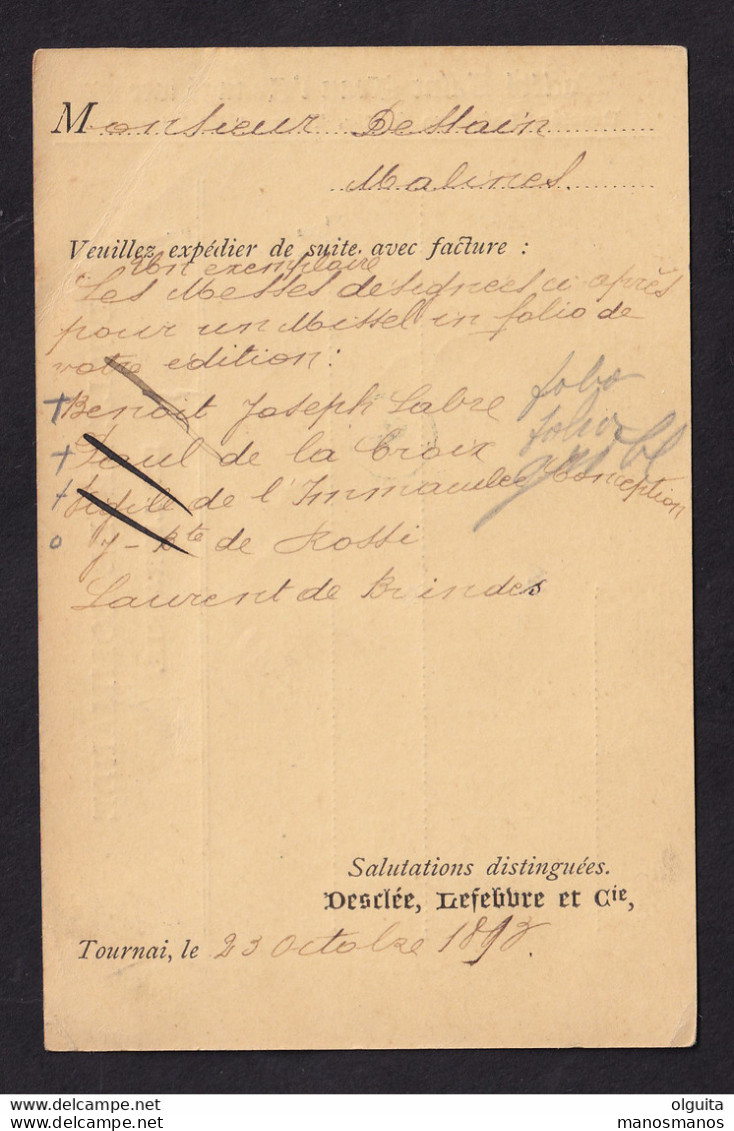 Monsieur Dessain
Malines.
Veuillez expédier de suite avec facture :
Un exemplaire
Les Messes designées ci après
pour un Missel in folio de
votre edition:
+ Benoit Joseph Labre folio
+ Paul de la Croix folio
+ de l'Immaculee Conception
o J-Bte de Rossi
Laurent de Brindes
Salutations distinguées.
Desclée, Lefebvre et Cie,
Tournai, le 23 Octobre 1893.
olguita
manosmanos